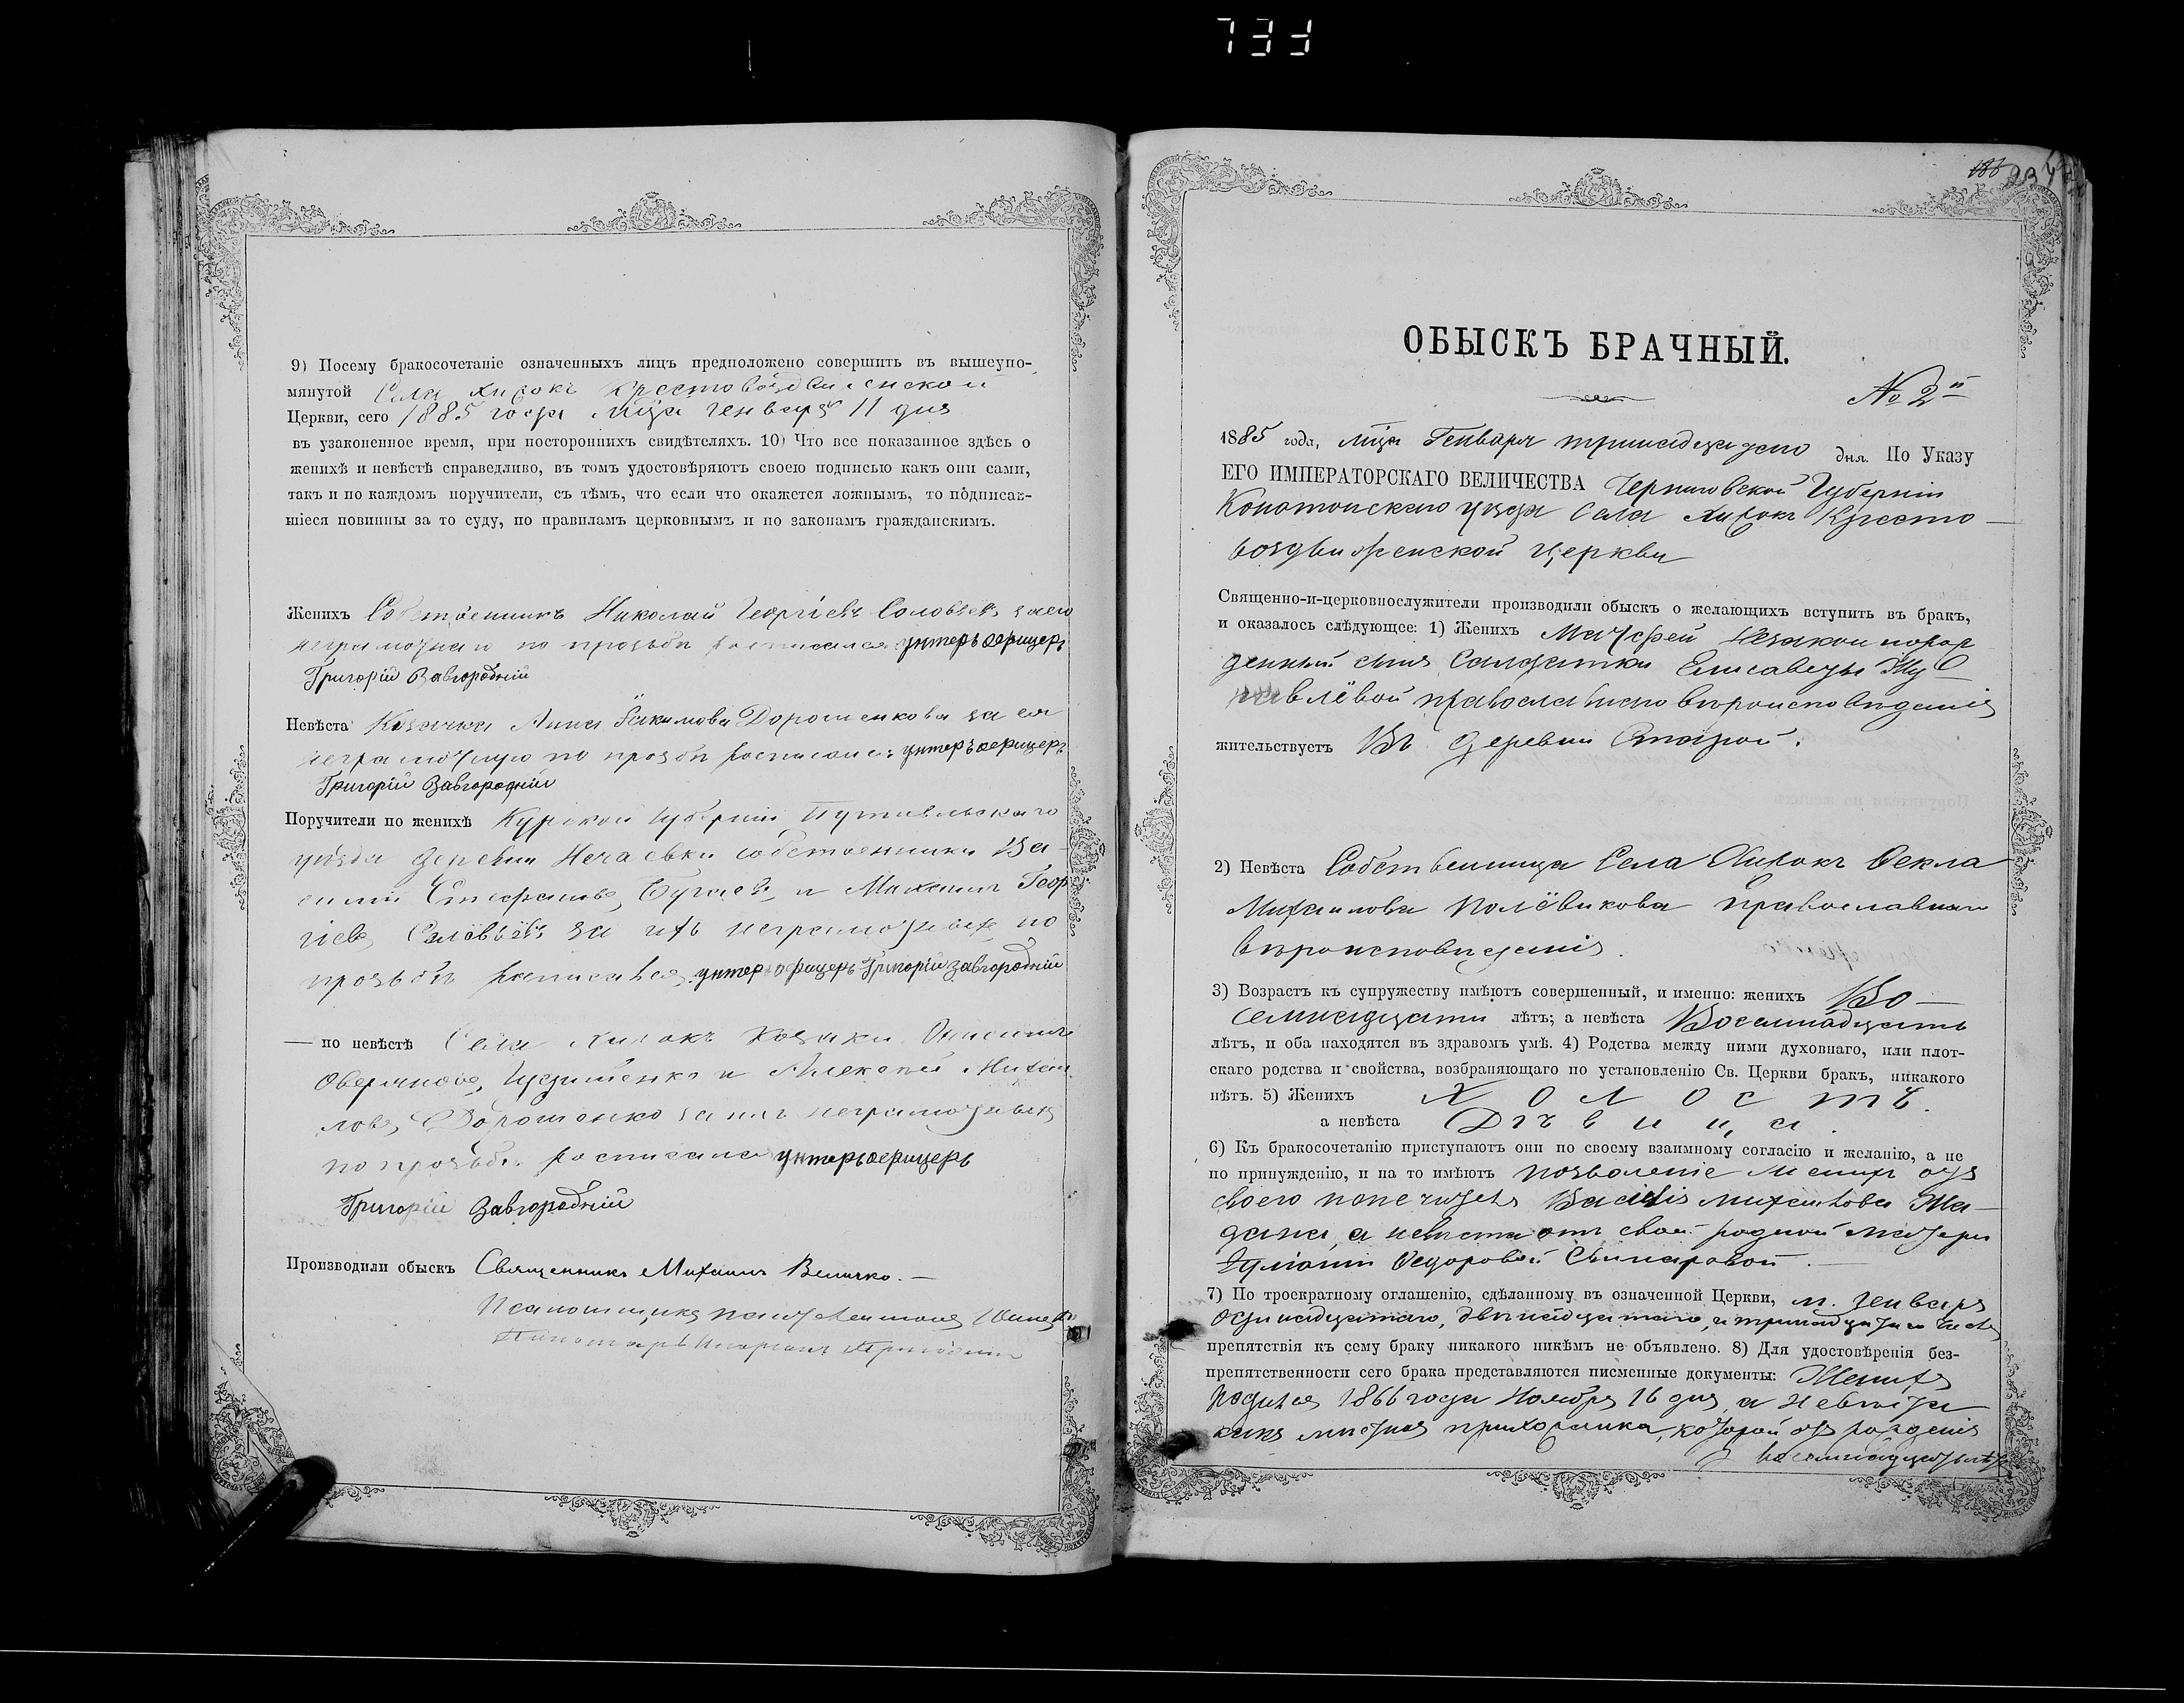 733
9) Посему бракосочетаніе означенныхъ лицъ предположено совершить въ вышеупо-
мянутой Села Хижокъ Крестовоздвиженской
Церкви, сего 1885 года мца генваря 11 дня
въ узаконенное время, при постороннихъ свидѣтеляхъ. 10) Что все показанное здѣсь о
женихѣ и невѣстѣ справедливо, въ томъ удостовѣряютъ своею подписью какъ они сами,
такъ и по каждомъ поручители, съ тѣмъ, что если что окажется ложнымъ, то подписав-
шіеся повинны за то суду, по правиламъ церковнымъ и по законамъ гражданскимъ.
Женихъ Собственникъ Николай Георгіевъ Соловьевъ за его
неграмотнаго по прозьбѣ росписался унтеръ оерицеръ
Григорій Завгородній
Невѣста Козачка Анна Дорошенкова за ея
неграмотную по прозьбѣ росписался унтеръ оерицеръ
Григорій Завгородній
Поручители по женихѣ Курской Губерніи Путивльскаго
уѣзда деревни Нечаевки собственники Ва-
силій Стефановъ Бугаевъ и Михаилъ Геор
гіевъ Соловьёвъ за ихъ неграмотныхъ по
прозьбѣ росписался унтеръ офицеръ Григорій Завгородній
— по невѣстѣ Села Хижокъ Козаки
и Алексѣй Михаи
ловъ Дорошенко за ихъ неграмотныхъ
по прозьбѣ росписался унтеръ оерицеръ
Григорій Завгородній
Производили обыскъ Священникъ Михаилъ Величко.—
Псаломщикъ
Пономарь
186
ОБЫСКЪ БРАЧНЫЙ.
№ 2й
1885 года, мца Генваря тринадцадаго дня. По Указу
ЕГО ИМПЕРАТОРСКАГО ВЕЛИЧЕСТВА Черниговской Губерніи
Конотопскаго уѣзда Села Хижокъ Кресто—
воздвиженской церкви
Священно-и-церковнослужители производили обыскъ о желающихъ вступить въ бракъ,
и оказалось слѣдующее: 1) Женихъ Матфей Незаконнорож
денный сынъ Салдатки Елисаветы Жу
равлёвой православнаго вѣроисповѣданія
жительствуетъ Въ деревни Старой.
2) Невѣста Собственница Села Хижокъ Оекла
Михаилова Полёвикова православнаго
вѣроисповѣданія.
3) Возрастъ къ супружеству имѣютъ совершенный, и именно: женихъ Во—
семнадцати лѣтъ; а невѣста Восемнадцать
лѣтъ, и оба находятся въ здравомъ умѣ. 4) Родства между ними духовнаго, или плот-
скаго родства и свойства, возбраняющаго по установленію Св. Церкви бракъ, никакого
нѣтъ. 5) Женихъ Холостъ.
а невѣста Дѣвица.
6) Къ бракосочетанію приступаютъ они по своему взаимному согласію и желанію, а не
по принужденію, и на то имѣютъ позволеніе Женихъ отъ
своего попечителя Василія Михаилова Жа—
дана, а невѣста отъ своей родной матери
Оедоровой
7) По троекратному оглашенію, сдѣланному въ означенной Церкви, м. генваря
одинадцатаго, двѣнадцатаго, и тринадцатаго числъ
препятствія къ сему браку никакого никѣмъ не объявлено. 8) Для удостовѣренія без-
препятственности сего брака представляются писменные документы: Женихъ
родился 1866 года Ноября 16 дня, а невѣста
какъ мѣстная прихожанка, которой отъ рожденія
восемнадцать лѣтъ